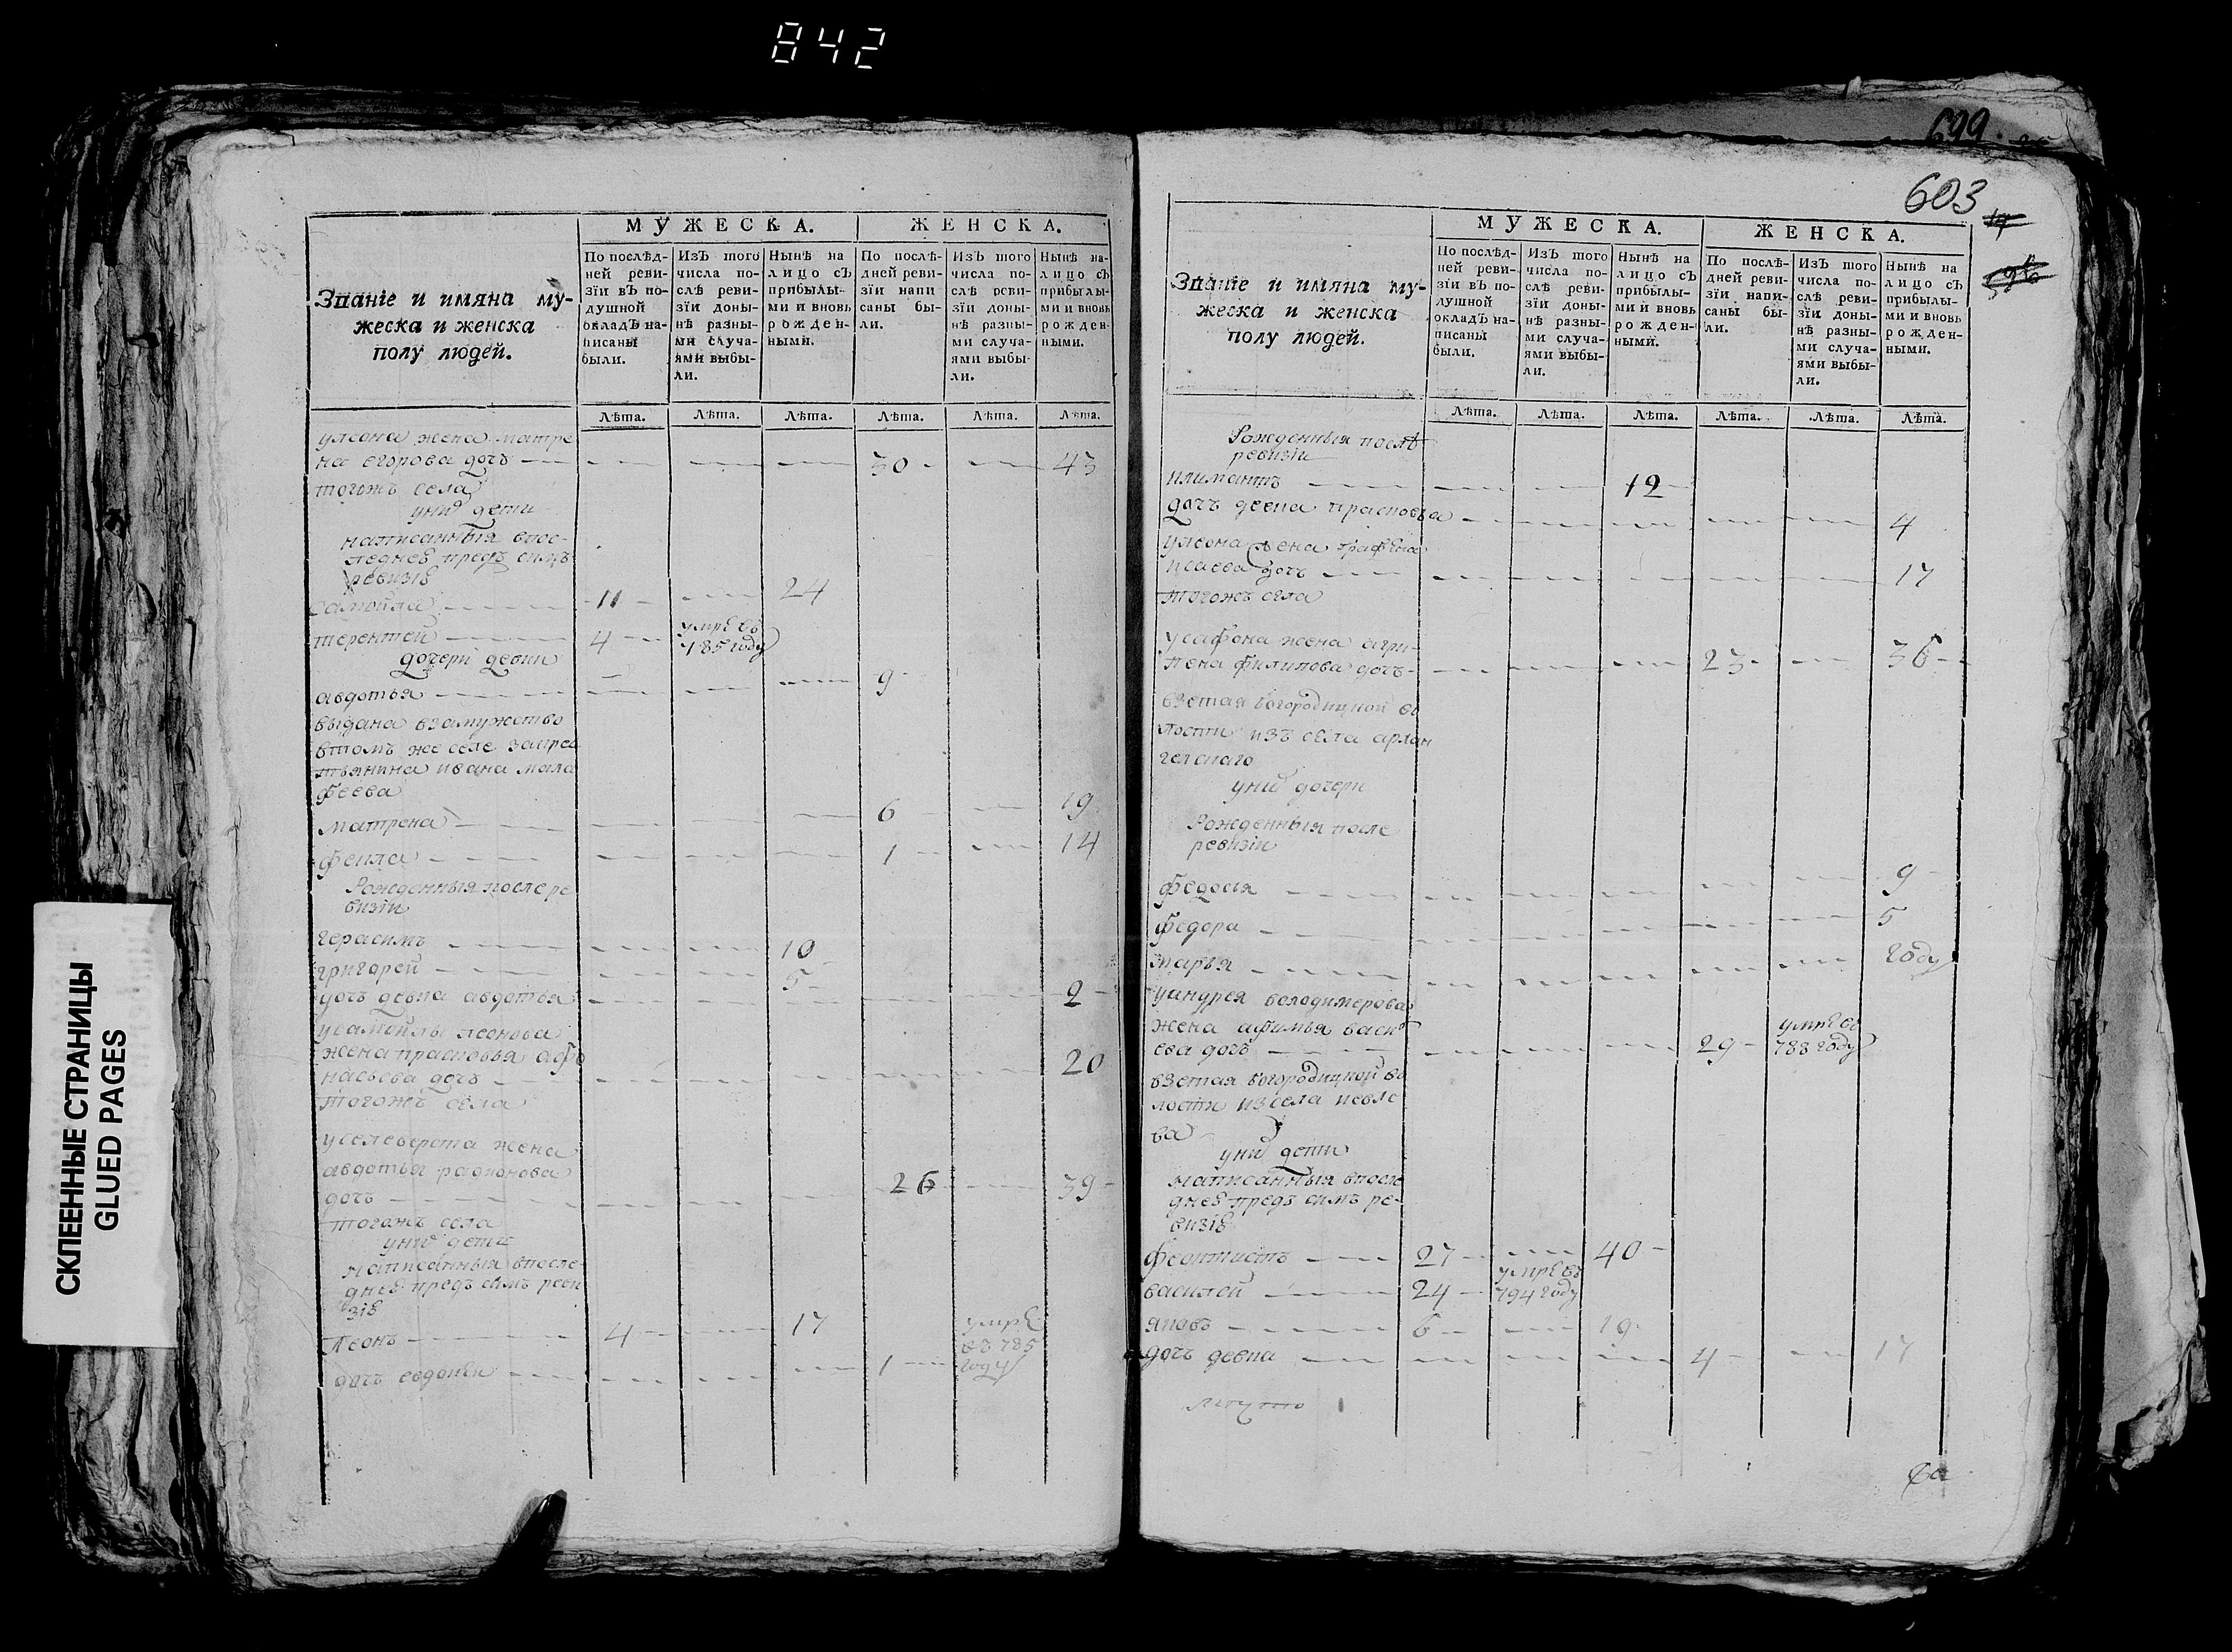 842
СКЛЕЕННЫЕ СТРАНИЦЫ
GLUED PAGES
М У Ж Е С К А.
Ж Е Н С К А.
Званіе и имяна му-
жеска и женска
полу людей.
По послѣд-
ней реви-
зїи вЪ по-
душной
окладЪ на-
писаны
были.
ИзЪ того
числа по-
слѣ реви-
зїи доны-
нѣ разны-
ми случа-
ями выбы-
ли.
Нынѣ на
лицо сЪ
прибылы-
ми и вновь
рожден-
ными.
По послѣ-
дней реви-
зїи напи
саны бы-
ли.
ИзЪ того
числа по-
слѣ реви-
зїи доны-
нѣ разны-
ми случа-
ями выбы-
ли.
Нынѣ на-
лицо сЪ
прибылы-
ми и вновь
рожден
ными.
Лѣта. Лѣта. Лѣта. Лѣта. Лѣта. Лѣта.
улеона жена матре
на егорова дочь 30 43
тогожъ села
уних дети
написанныя впос-
леднеѣ предъ симъ
ревизіѣ
самойла 11 24
терентей 4 умрѣ въ
785 году
дочери девки
авдотья 9
выдана взамужство
втомъ же селе закрес
тьянина ивана мала
феева
матрена 6 19
фекла 1 14
Рожденныя после ре
визіи
герасимъ 10
григорей 5
дочь девка авдотья 2
усамойлы леонова
жена прасковья афо
насьева дочь 20
тогожъ села
уселеверста жена
авдотья радионова
дочь 26 39
тогожъ села
уних дети
написанныя впосле
днеѣ предъ симъ реви
зіѣ
леонъ 4 17
дочь 1 умрѣ
въ 785
году
699
603
М У Ж Е С К А.
Ж Е Н С К А.
Званіе и имяна му-
жеска и женска
полу людей.
По послѣд-
ней реви-
зїи вЪ по-
душной
окладЪ на-
писаны
были.
ИзЪ того
числа по-
слѣ реви-
зїи доны-
нѣ разны-
ми случа-
ями выбы-
ли.
Нынѣ на
лицо сЪ
прибылы-
ми и вновь
рожден-
ными.
По послѣ-
дней реви-
зїи напи-
саны бы-
ли.
ИзЪ того
числа по-
слѣ реви-
зїи доны-
нѣ разны-
ми случа-
ями выбы-
ли.
Нынѣ на
лицо сЪ
прибылы-
ми и вновь
рожден-
ными.
Лѣта. Лѣта. Лѣта. Лѣта. Лѣта. Лѣта.
Рожденныя послѣ
ревизіи
климантъ 12
дочь девка прасковья 4
улеона жена графена
исаева дочь 17
тогожъ села
усафона жена агри-
пена филипова дочь 23 36
взетая богородицкой во
лости изъ села архан
гелскаго
уних дочери
Рожденныя после
ревизіи
федосья 9
федора 5
марья году
укндрея володимерова
жена афимья васи
ева дочь 29 умрѣ въ
788 году
взетая богородицкой во
лости изсела иевле
ва
уних дети
написанныя впосле
днеѣ предъ симъ ре-
визіѣ
феоктистъ 27 40
василей 24 умрѣ въ
794 году
яковъ 6 19
дочь девка 4 17